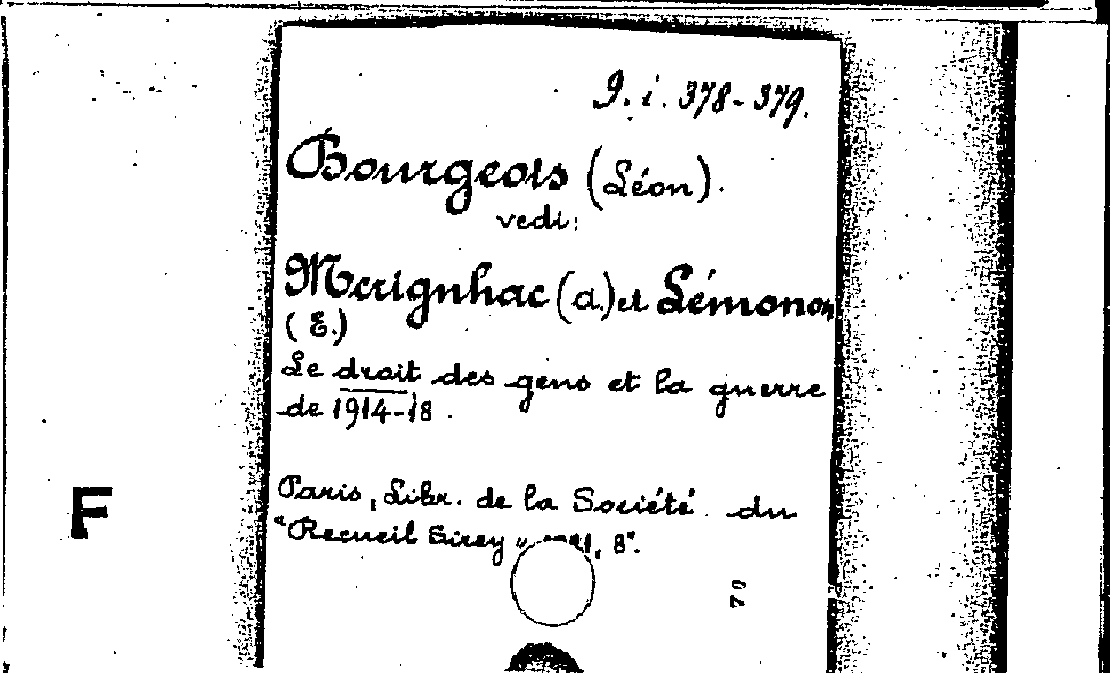 9. i. 378-379.
Bourgeois (Léon).
vedi:
Merignhac (A.) et Lémonon
(E.)
Le droit des gens et la guerre
de 1914-18.
Paris, Libr. de la Société du
"Recueil Sirey", 8°.
F
70